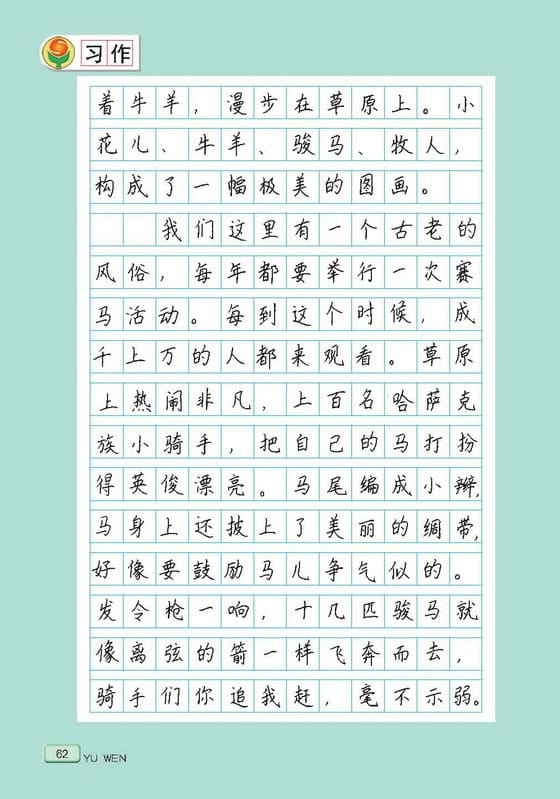 习作
着牛羊，漫步在草原上。小
花儿、牛羊、骏马、牧人，
构成了一幅极美的图画。
我们这里有一个古老的
风俗，每年都要举行一次赛
马活动。每到这个时候，成
千上万的人都来观看。草原
上热闹非凡，上百名哈萨克
族小骑手，把自己的马打扮
得英俊漂亮。马尾编成小辫，
马身上还披上了美丽的绸带，
好像要鼓励马儿争气似的。
发令枪一响，十几匹骏马就
像离弦的箭一样飞奔而去，
骑手们你追我赶，毫不示弱。
62 YU WEN